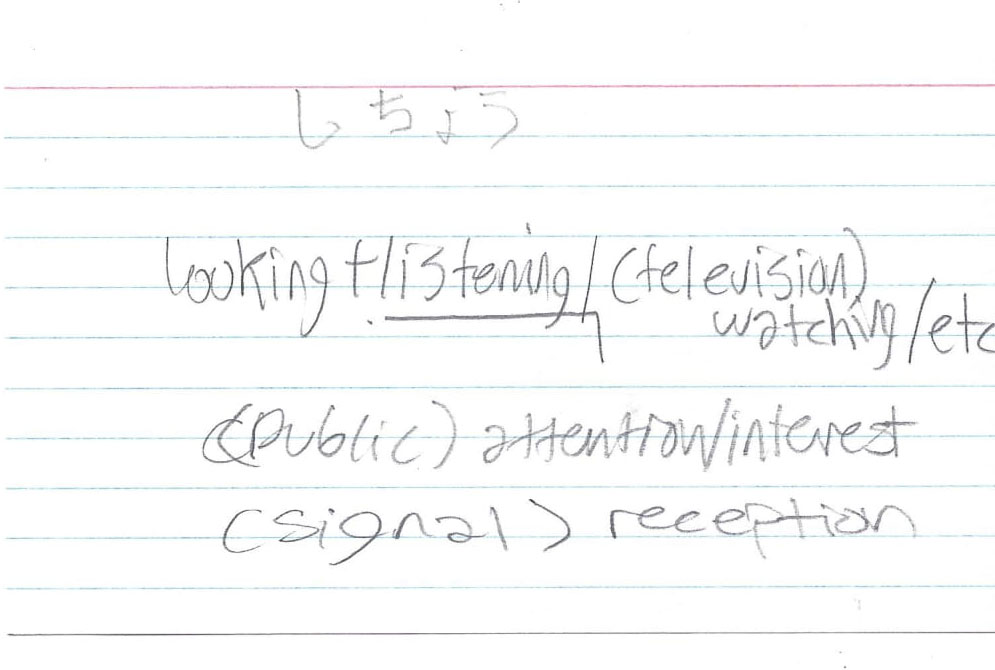 しちょう
looking + listening/(television)
watching/etc
(public) attention/interest
(signal) reception